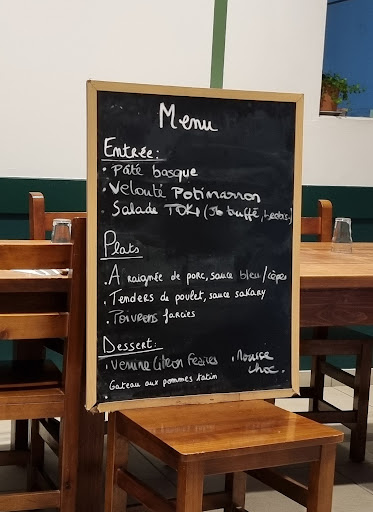 Menu
Entrée:
· Pâté basque
· Velouté Potimarron
· Salade TOKI (Jb truffé,
Plats
· Araignée de porc, sauce bleu/cèpes
· Tenders de poulet, sauce sakary
· Poivrons farcies
Dessert:
· Verrine Citron · Mousse
choc.
Gateau aux pommes tatin